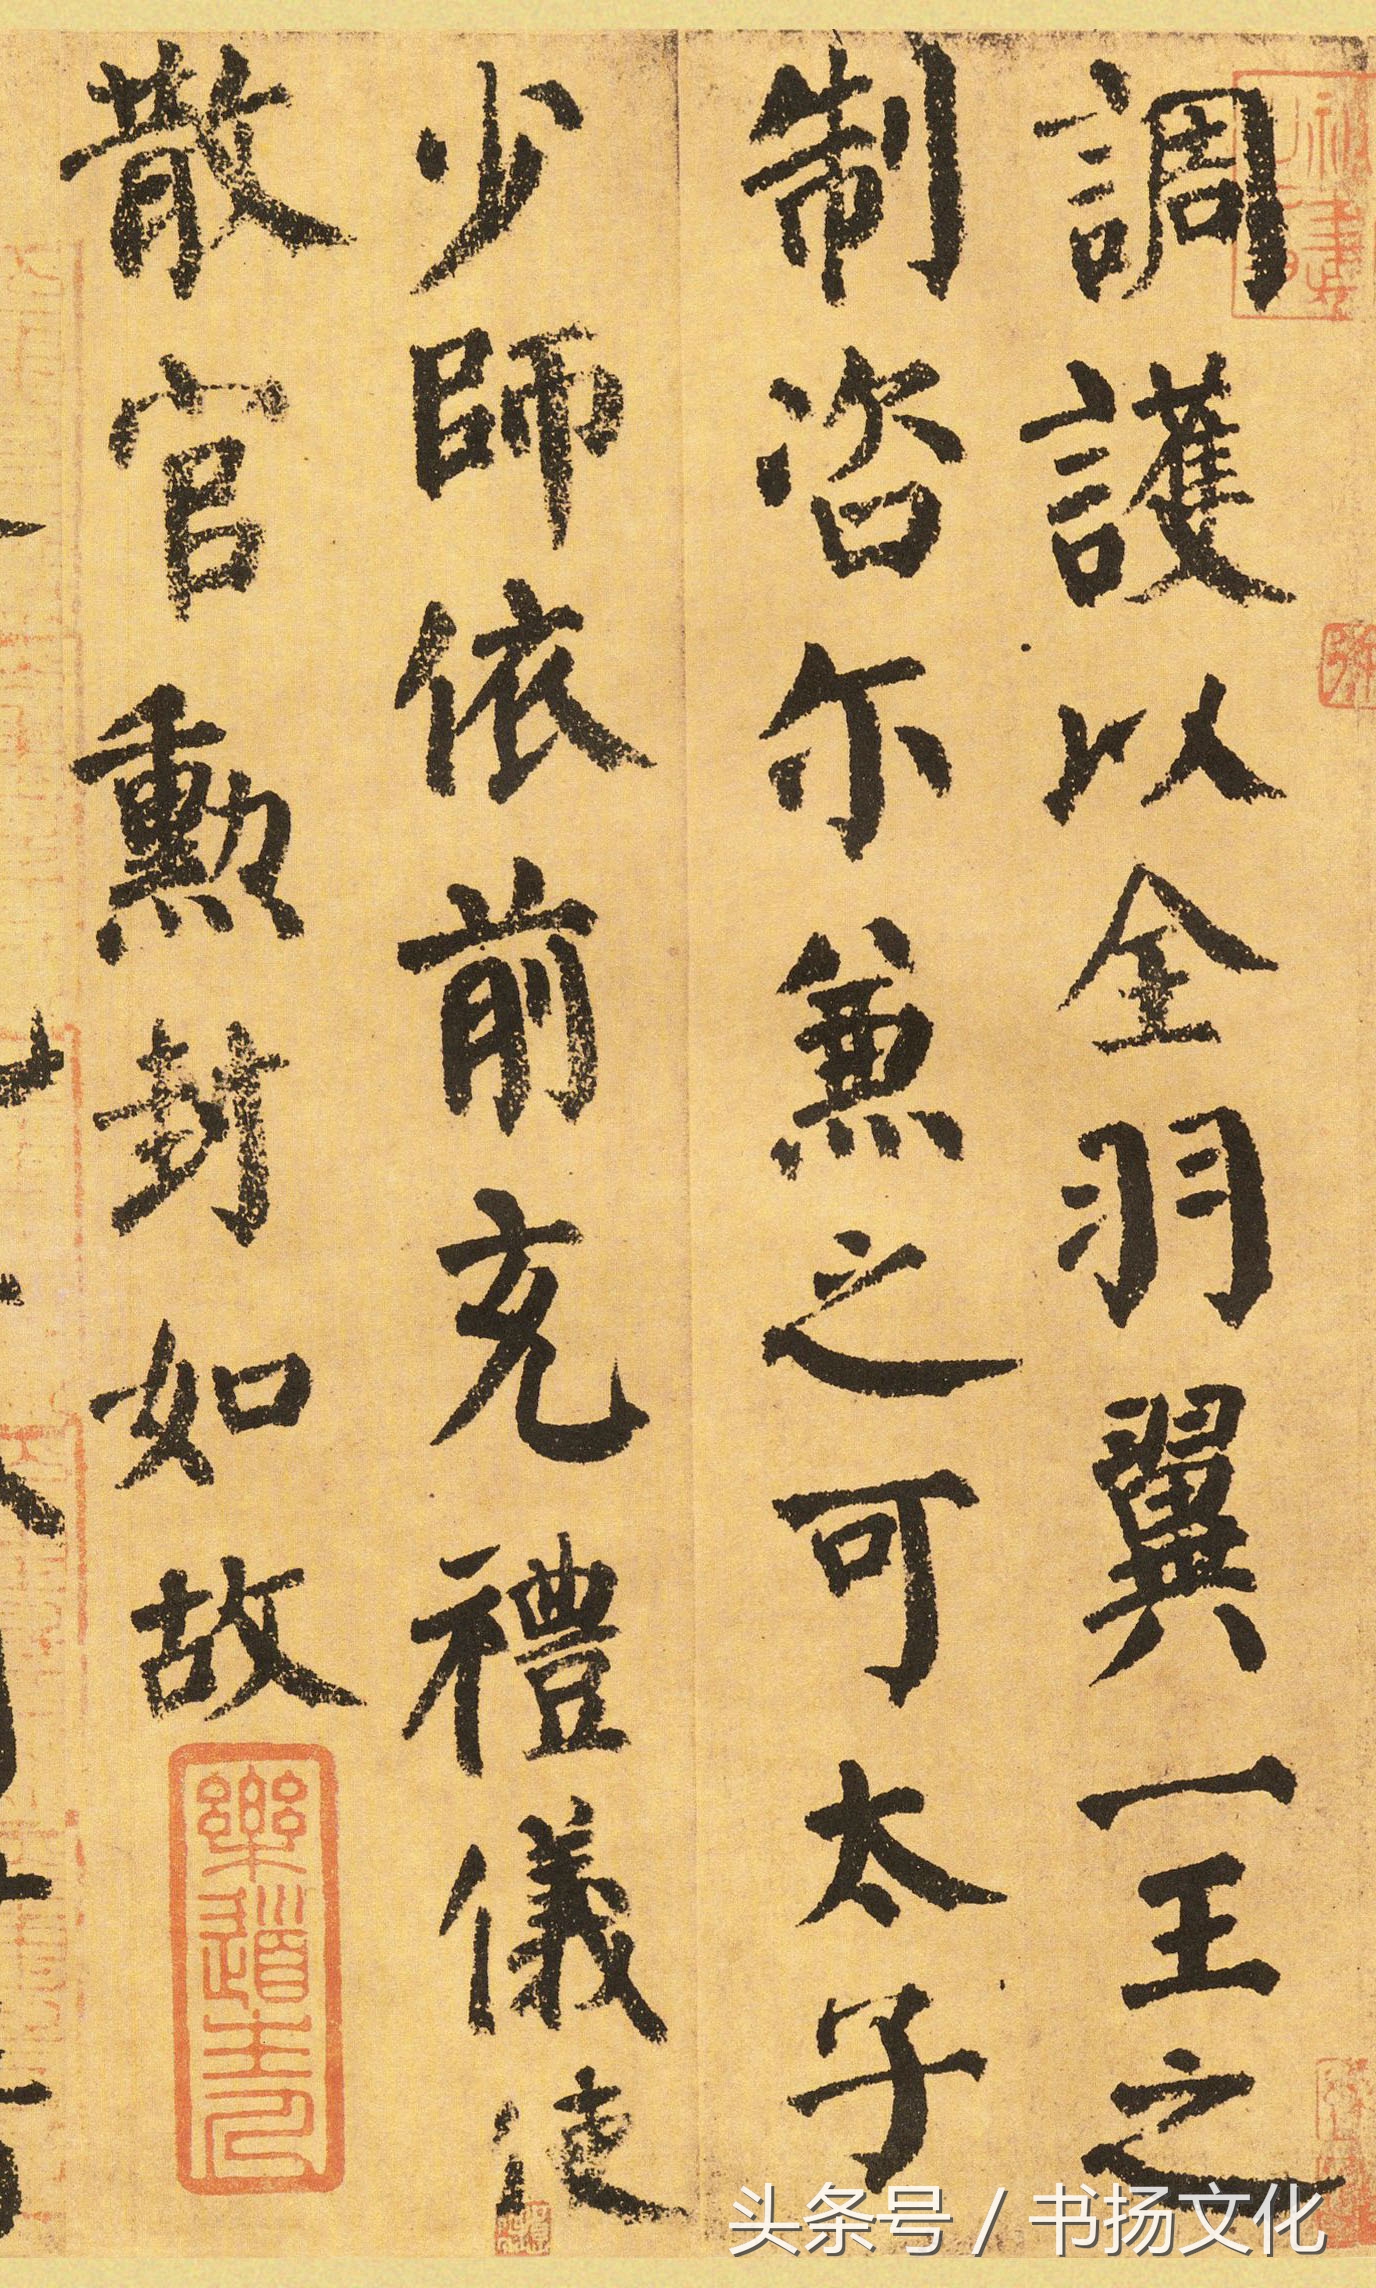 調護以全羽翼一王之
制咨尓兼之可太子
少師依前充禮儀使
散官勳封如故
頭条号 / 书扬文化